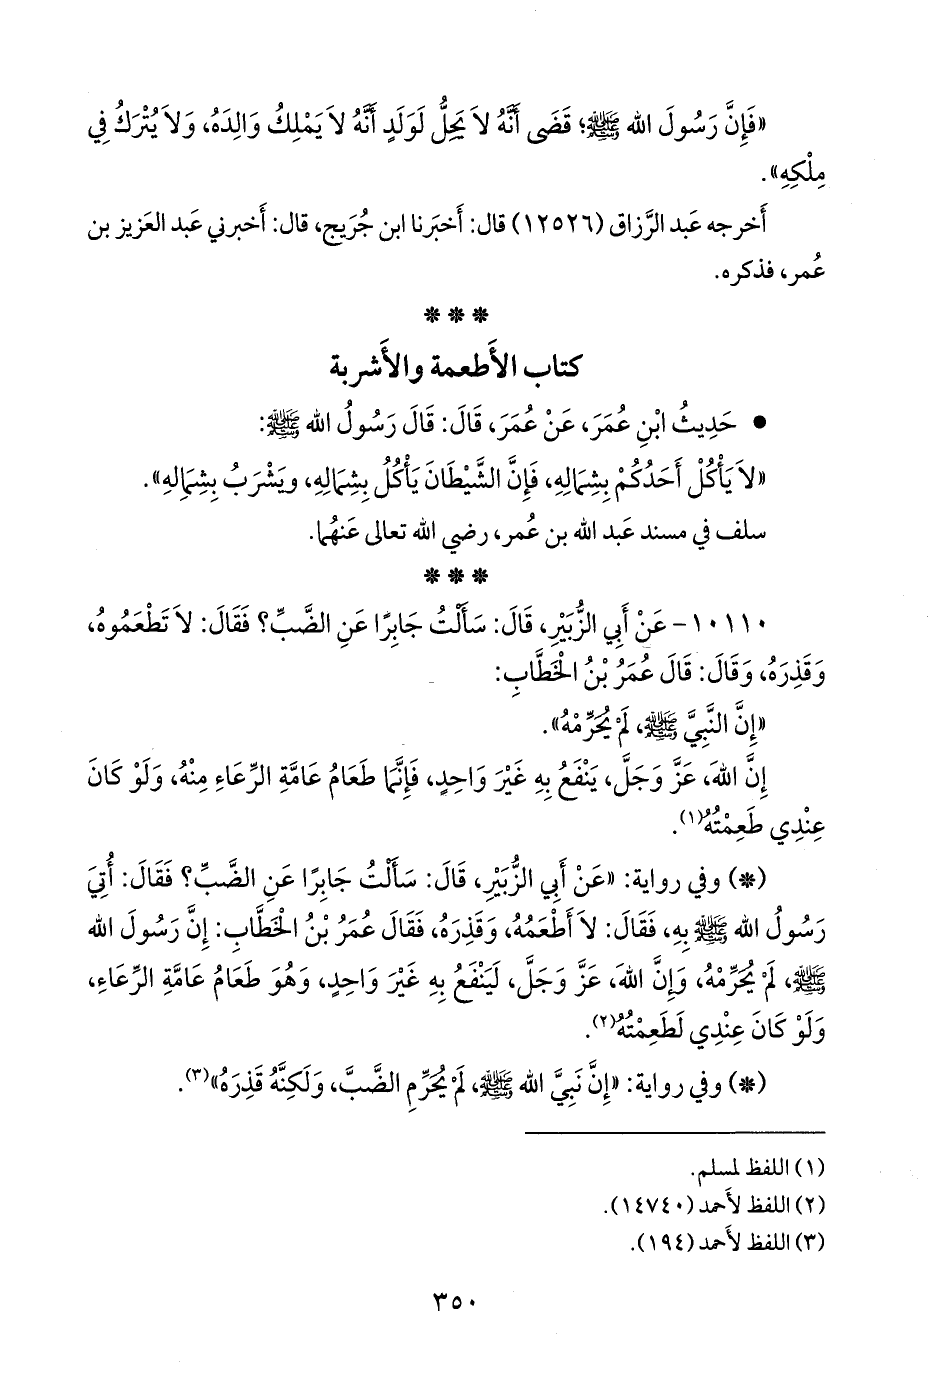 «فَإِنَّ رَسُولَ الله ﷺ؛ قَضَى أَنَّهُ لاَ يَحِلُّ لَوَلَدٍ أَنَّهُ لاَ يَمْلِكُ وَالِدَهُ، وَلاَ يُتْرَكُ فِي
مِلْكِهِ».
أَخرجه عَبد الرَّزاق (١٢٥٢٦) قال: أَخبَرنا ابن جُرَيج، قال: أَخبرني عَبد العَزيز بن
عُمر، فذكره.
* * *
كتاب الأَطعمة والأَشربة
• حَدِيثُ ابْنِ عُمَرَ، عَنْ عُمَرَ، قَالَ: قَالَ رَسُولُ الله ﷺ:
«لاَ يَأْكُلْ أَحَدُكُمْ بِشِمَالِهِ، فَإِنَّ الشَّيْطَانَ يَأْكُلُ بِشِمَالِهِ، ويَشْرَبُ بِشِمَالِهِ».
سلف في مسند عَبد الله بن عُمر، رضي الله تعالى عَنهُما.
* * *
١٠١١٠- عَنْ أَبِي الزُّبَيْرِ، قَالَ: سَأَلْتُ جَابِرًا عَنِ الضَّبِّ؟ فَقَالَ: لاَ تَطْعَمُوهُ،
وَقَذِرَهُ، وَقَالَ: قَالَ عُمَرُ بْنُ الْخَطَّابِ:
«إِنَّ النَّبِيَّ ﷺ، لَمْ يُحَرِّمْهُ».
إِنَّ اللهَ، عَزَّ وَجَلَّ، يَنْفَعُ بِهِ غَيْرَ وَاحِدٍ، فَإِنَّمَا طَعَامُ عَامَّةِ الرِّعَاءِ مِنْهُ، وَلَوْ كَانَ
عِنْدِي طَعِمْتُهُ(١).
(*) وفي رواية: «عَنْ أَبِي الزُّبَيْرِ، قَالَ: سَأَلْتُ جَابِرًا عَنِ الضَّبِّ؟ فَقَالَ: أُتِيَ
رَسُولُ الله ﷺ بِهِ، فَقَالَ: لاَ أَطْعَمُهُ، وَقَذِرَهُ، فَقَالَ عُمَرُ بْنُ الْخَطَّابِ: إِنَّ رَسُولَ الله
ﷺ، لَمْ يُحَرِّمْهُ، وَإِنَّ اللهَ، عَزَّ وَجَلَّ، لَيَنْفَعُ بِهِ غَيْرَ وَاحِدٍ، وَهُوَ طَعَامُ عَامَّةِ الرِّعَاءِ،
وَلَوْ كَانَ عِنْدِي لَطَعِمْتُهُ(٢).
(*) وفي رواية: «إِنَّ نَبِيَّ الله ﷺ، لَمْ يُحَرِّمِ الضَّبَّ، وَلَكِنَّهُ قَذِرَهُ»(٣).
(١) اللفظ لمسلم.
(٢) اللفظ لأَحمد (١٤٧٤٠).
(٣) اللفظ لأَحمد (١٩٤).
٣٥٠